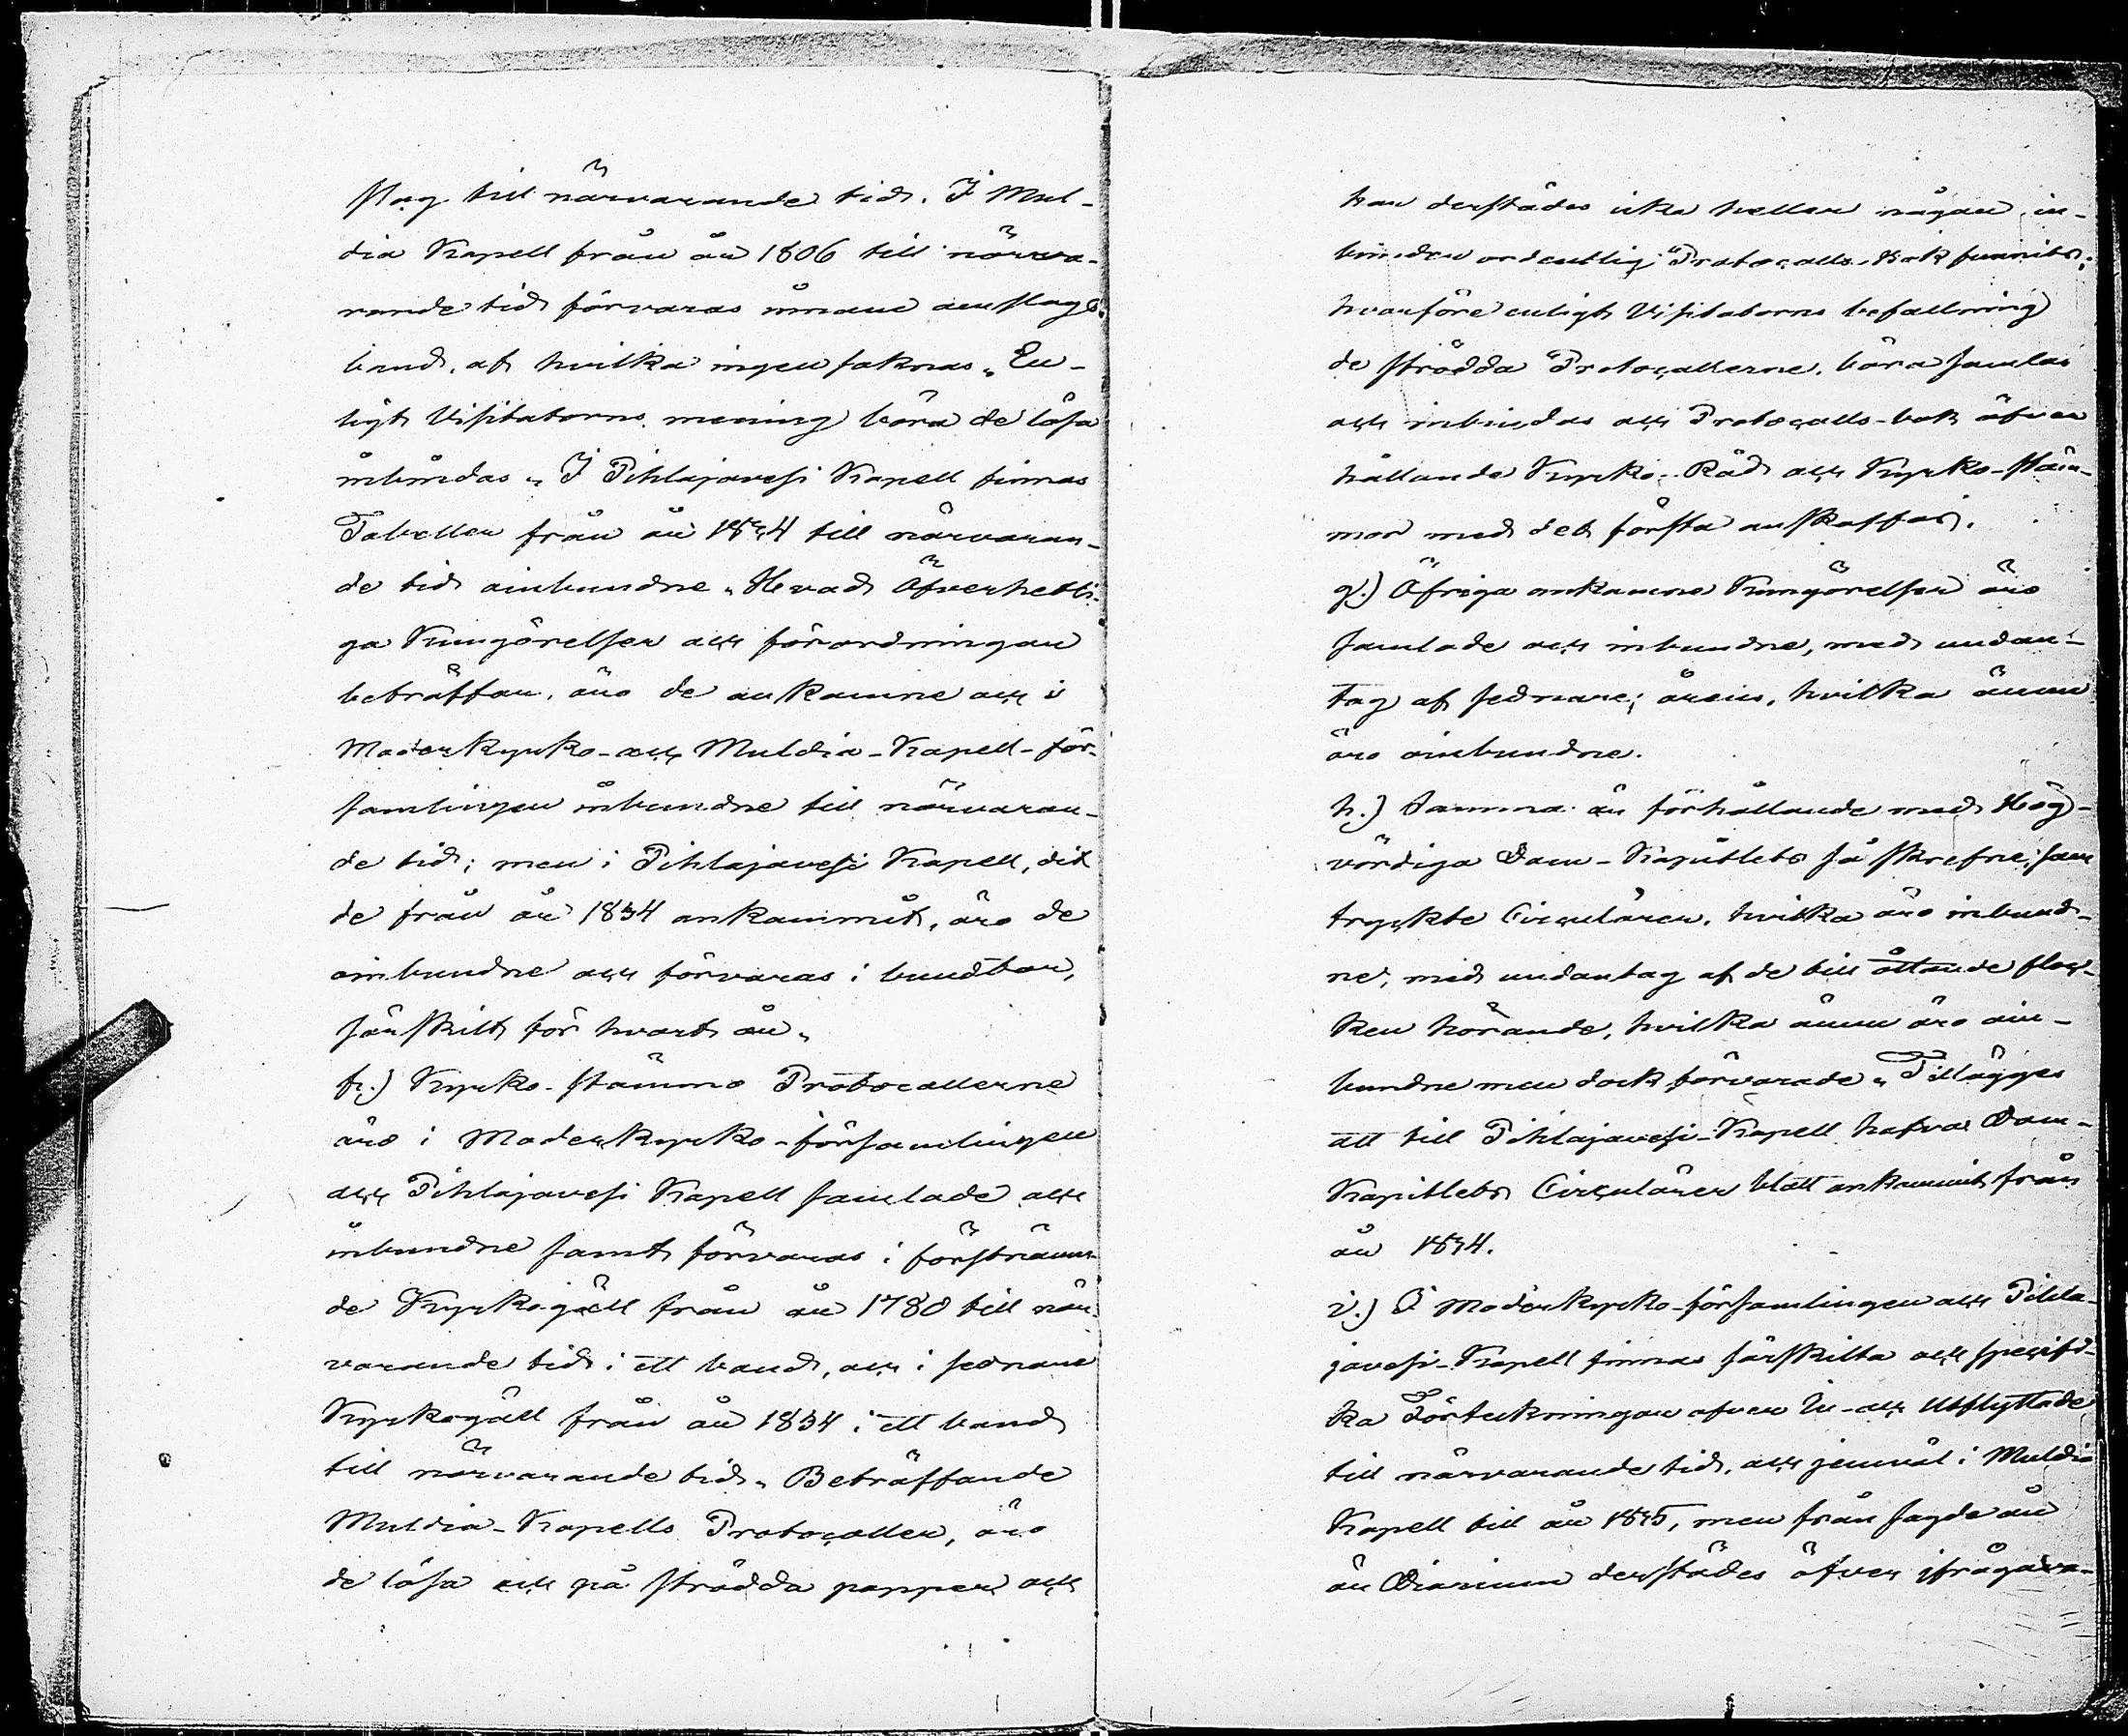 slag till närvarande tid. I Mul-
dia Kapell från år 1806 till närva-
rande tid förvaras innom anslags
band, af hvilka ingen saknas. En-
ligt Visitatorns mening böra de lösa
inbindas. I Pihlajavesi Kapell finnas
Tabeller från år 1834 till närvaran-
de tid oinbundne. Hvad Öfverhetli-
ga Kungörelser och förordningar
beträffar, äro de ankomne och i
Moderkyrko- och Muldia-Kapell-för-
samlingen inbundne till närvaran-
de tid; men i Pihlajavesi Kapell, dit
de från år 1834 ankommit, äro de
oinbundne och förvaras i bundtar,
särskilt för hvart år.
f.) Kyrko-stämmo Protocollerne
äro i Moderkyrko-församlingen
och Pihlajavesi Kapell samlade och
inbundne samt förvaras i förstnämn-
de Kyrkogäll från år 1780 till när-
varande tid i ett band, och i sednare
Kyrkogäll från år 1834 i ett band
till närvarande tid. Beträffande
Muldia-Kapells Protocoller, äro
de lösa och på strödda papper och
har derstädes icke heller någon in-
bunden ordentlig Protocolls-Bok funnits,
hvarföre enligt Visitatorns befallning
de strödda Protocollerne, böra samlas
och inbindas och Protocolls-bok öfver
hållande Kyrko-Råd och Kyrko-stäm-
mor med det första anskaffas.
g.) Öfriga ankomne Kungörelser äro
samlade och inbundne, med undan-
tag af sednare årens, hvilka ännu
äro oinbundne.
h.) Samma är förhållande med Hög-
vördiga Dom-Kapitlets så skrefne, som
tryckte Circulärer, hvilka äro inbund-
ne, med undantag af de till åttande floc-
ken hörande, hvilka ännu äro oin-
bundne men dock förvarade. Tillägges
att till Pihlajavesi-Kapell hafva Dom-
Kapitlets Circulärer blott ankommit från
år 1834.
i.) I Moderkyrko-församlingen och Pihla-
javesi-Kapell finnas särskilta och specifi-
ka Förteckningar öfver In- och Utflyttade
till närvarande tid, och jemväl i Muldia
Kapell till år 1845, men från sagde år
är Diarium derstädes öfver ifrågava-